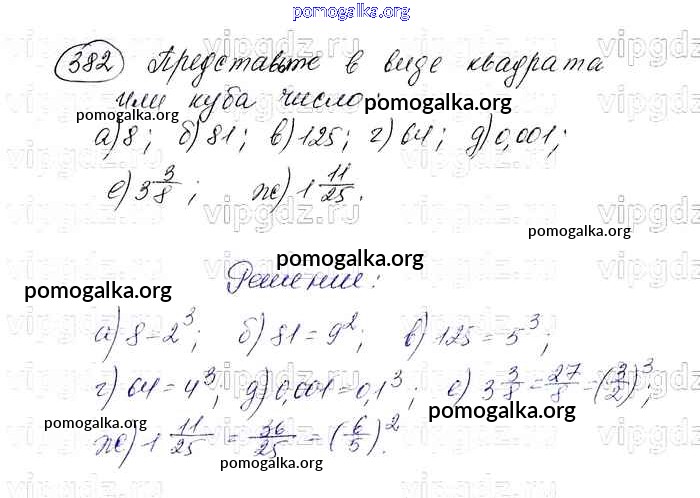 pomogalka.org
382 Представьте в виде квадрата
или куба число:
pomogalka.org
а) 8; б) 81; в) 125; г) 64; д) 0,001;
е) 3 3/8; ж) 1 11/25.
pomogalka.org
pomogalka.org
pomogalka.org
Решение:
pomogalka.org
а) 8 = 2³; б) 81 = 9²; в) 125 = 5³;
г) 64 = 4³; д) 0,001 = 0,1³; е) 3 3/8 = 27/8 = (3/2)³;
pomogalka.org
pomogalka.org
ж) 1 11/25 = 36/25 = (6/5)².
pomogalka.org